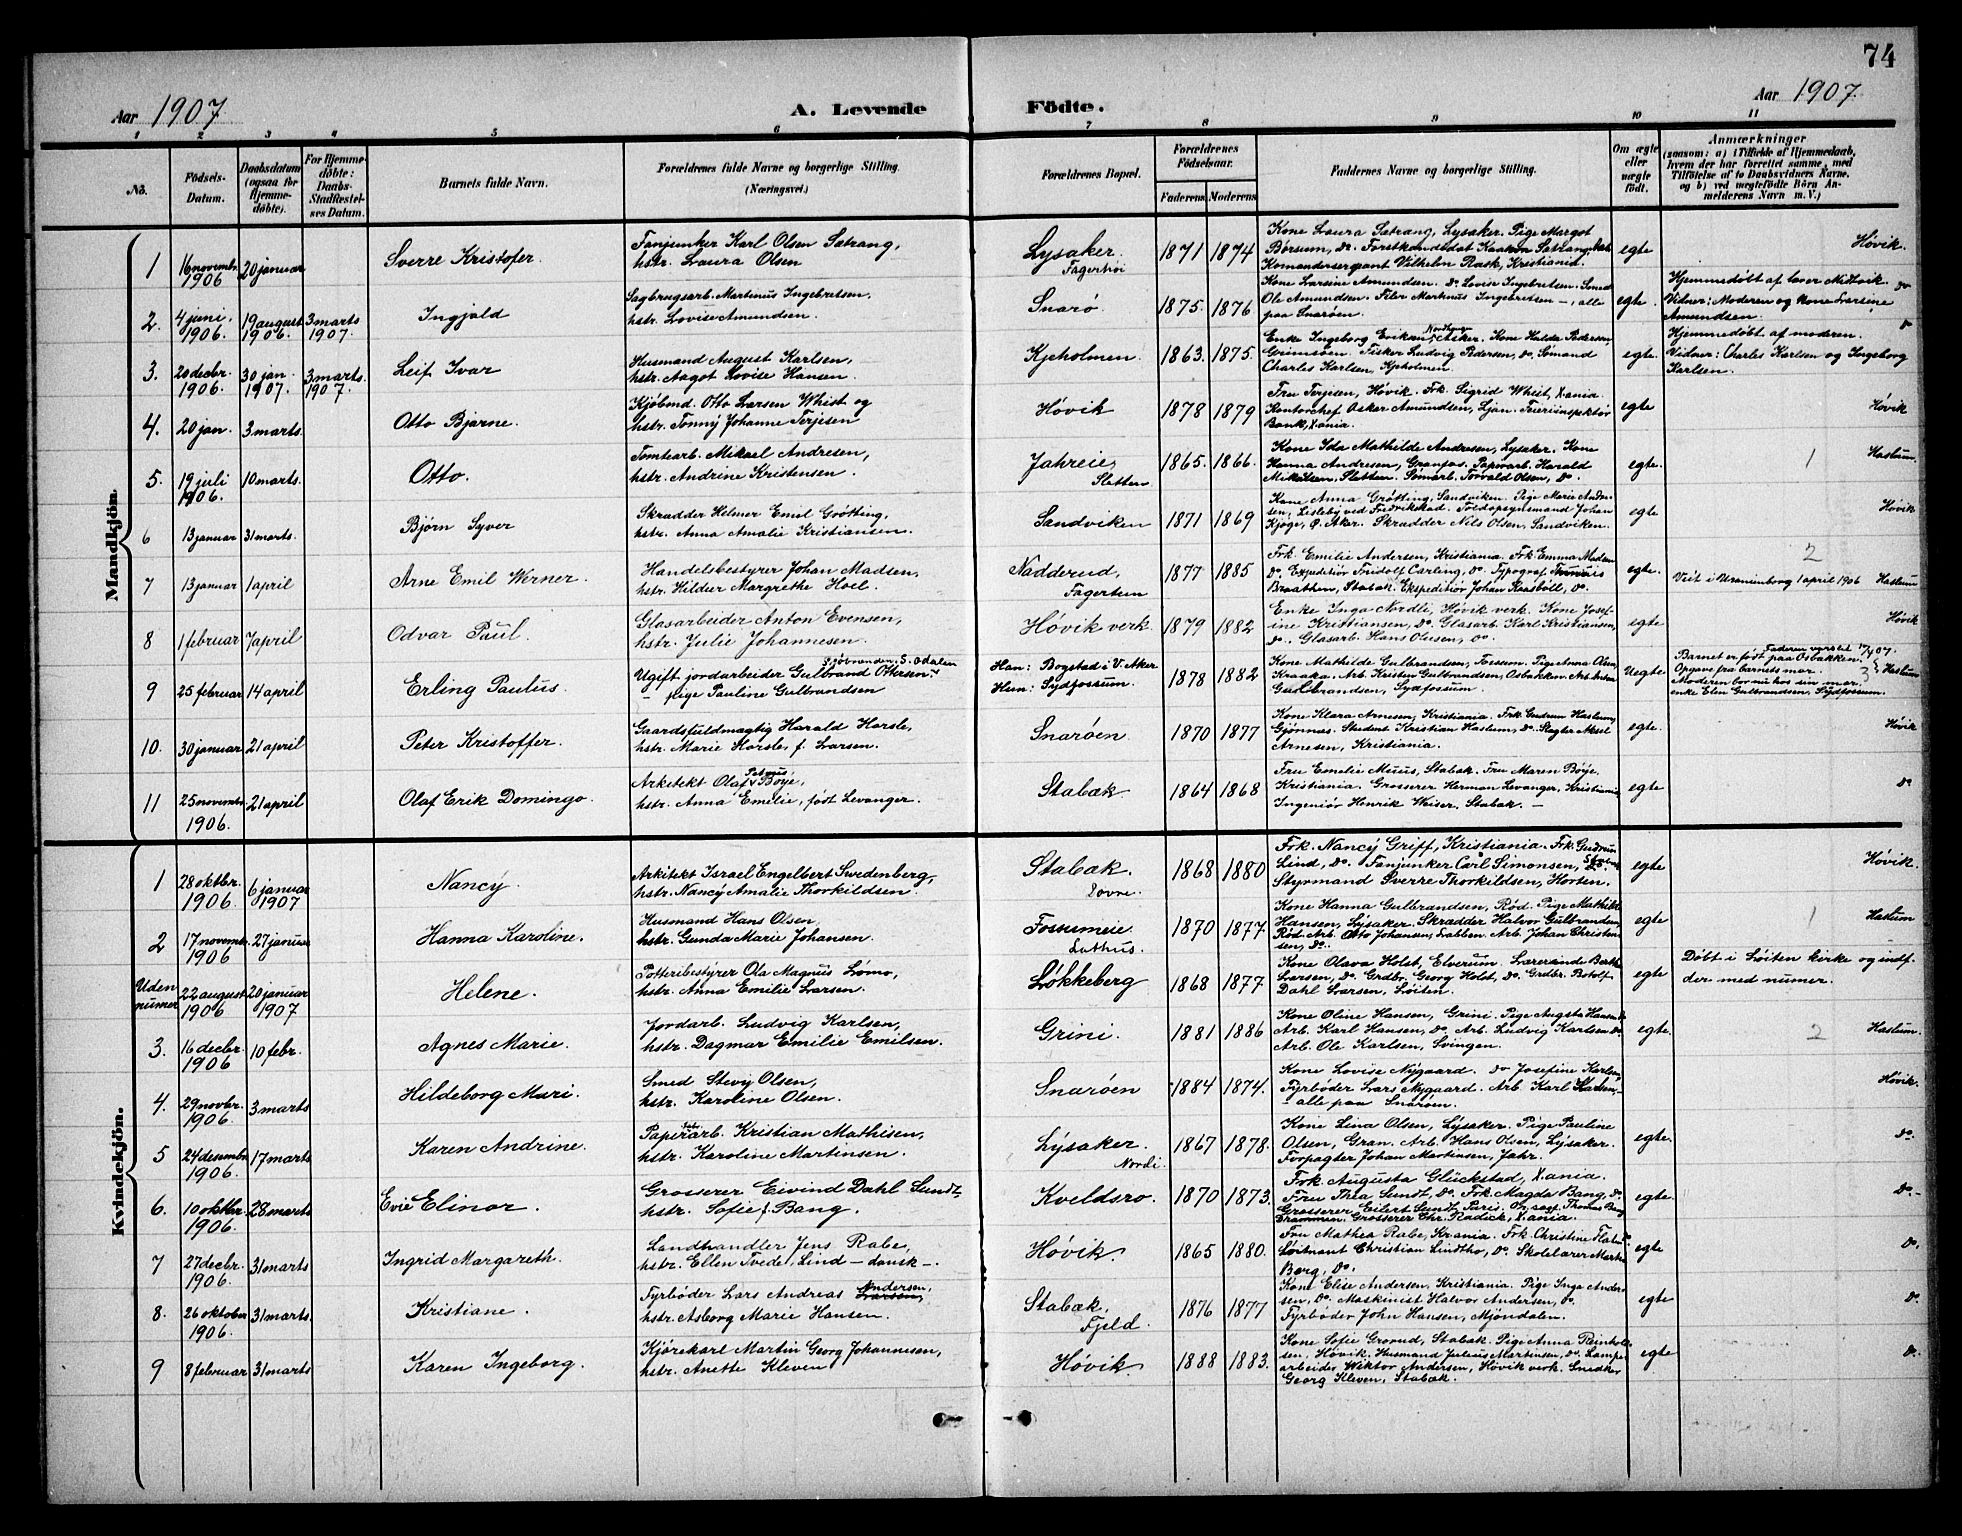 74
Aar 1907. A. Levende Födte. Aar 1907.
1 2 3 4 5 6 7 8 9 10 11
No. Födsels-Datum. Daabsdatum (ogsaa for Hjemme-döbte). For Hjemme-döbte: Daabs-Stadfæstel-ses Datum. Barnets fulde Navn. Forældrenes fulde Navne og borgerlige Stilling. (Næringsvei.) Forældrenes Bopæl. Forældrenes Födselsaar. Faderens Moderens Faddernes Navne og borgerlige Stilling. Om ægte eller uægte födt. Anmærkninger (saasom: a) i Tilfælde af Hjemmedaab, hvem der har forrettet samme, med Tilföielse af to Daabsvidners Navne, og b) ved uægtefödte Börn An-melderens Navn m. V.)
Mandkjön.
1 16 novembr. 1906 20 januar Sverre Kristofer. Fanjunker Karl Olsen Satrang, hstr. Laura Olsen Lysaker. Fagerhøi 1871 1874 Kone Laura Satrang, Lysaker. Pige Margot Børsum, do. Forstkandidat Haakon Satrang, Komandersergant Vilhelm Rask, Kristiania. egte Høvik.
2. 4 juni. 1906. 19 august 1906. 3 marts 1907. Ingjald Sagbrugsarb. Martinus Ingebretsen, hstr. Lovise Amundsen. Snarø 1875. 1876 Kone Larsine Amundsen. do Lovise Ingebretsen. Smed Ole Amundsen. Filer Markus Ingebretsen –, alle paa Snarøen. egte. Hjemmedøbt af lærer Vidner: Moderen og kone Larsine Amundsen. do
3. 20 decbr. 1906. 30 jan. 1907. 3 marts. 1907. Leif Ivar Husmand August Karlsen, hstr. Aagot Lovise Hansen. Kjeholmen. 1863. 1875. Enke Ingeborg Eriksen, Asker. Kone Hulda Pedersen, Grimsøen. Fisker Ludvig Pedersen, do. Sømand Charles Karlsen, Kjeholmen. egte. Hjemmedøbt af moderen. Vidner: Charles Karlsen og Ingeborg Karlsen. do
4. 20 jan. 3 marts. Otto Bjarne. Kjøbmd. Otto Larsen Whist og hstr. Tonny Johanne Terjesen Høvik 1878 1879 Fru Terjesen, Høvik. Frk. Sigrid Whist, Xania. Kontorchef Osker Amundsen, Ljan. Meieriinspektør Bank, Xania. egte Høvik
5. 19 juli 1906. 10 marts. Otto. Tomtearb. Mikael Andresen, hstr. Andrine Kristensen. Jahreie, Sletten 1865. 1866. Kone Ida Mathilde Andresen, Lysaker. Kone Hanna Andresen, Granfos. Papirarb. Harald Mikalsen, Sletten. Tomarb. Torvald Olsen, do. egte. 1 Haslum.
6 13 januar 31 marts. Bjørn Syver Skrædder Helmer Emil Grøtting, hstr. Anna Amalie Kristiansen. Sandviken 1871 1869 Kone Anna Grøtting, Sandviken. Pige Marie Andersen, Lisleby ved Fredrikstad. Toldopsynsmand Johan Kjøge, Ø. Aker. Skrædder Nils Olsen, Sandviken. egte Høvik
7 13 januar 1 april Arne Emil Werner. Handelsbestyrer Johan Madsen, hstr. Hilder Margrethe Hoel. Nadderud, Fagertun 1877 1885 Frk. Emilie Andersen, Kristiania. Frk Emma Madsen do. Expeditiør Fridolf Carling, do. Typograf Braathen, Stabæk. Ekspeditiør Johan Kaasbøll, do. egte. 2 Viet i Uranienborg 1 april 1906 Haslum
8 1 februar 7 april Odvar Paul. Glasarbeider Anton Evensen, hstr. Julie Johannesen. Høvik verk. 1879 1882 Enke Inga Nordli, Høvik verk. Kone Josefine Kristiansen, do. Glasarb. Karl Kristiansen, do., Glasarb. Hans Olsen, do. egte Høvik
9 25 februar 14 april Erling Paulus. Ugift jordarbeider Gulbrand Ottersen S. Odalen pige Pauline Gulbrandsen Han: Bogstad i V. Aker Hun: Sydfossum. 1878 1882 Kone Mathilde Gulbrandsen, Fossum. Pige Anna Olsen, Kraaka. Arb. Kristen Gulbrandsen, Osbakken. Arb. Anton Gulbrandsen, Sydfossum. Uegte Barnet er født paa Osbakken. Opgave fra barnets mor. Moderen bor hos sin mor, enke Elen Gulbrandsen, Sydfossum. 3 Haslum
10. 30 januar 21 april Peter Kristoffer. Gaardsfuldmægtig Harald Horsle, hstr. Marie Horsle, f. Larsen. Snarøen. 1870 1877 Kone Klara Arnesen, Kristiania. Frk. Gudrun Haslum, Gjønnes. Student Kristian Haslum, do. Slagter Aksel Arnesen, Kristiania. egte. Høvik
11 25 novembr. 1906. 21 april Olaf Erik Domingo. Arkitekt Olaf Petrus Bøye, hstr. Anna Emelie, født Levanger. Stabæk 1864 1868 Fru Emelie Muus, Stabæk. Fru Maren Bøye, Kristiania. Grosserer Herman Levanger, Kristiania, Ingeniør Henrik Weiser, Stabæk. – egte do.
Kvindekjön.
1 28 oktbr. 1906. 6 januar 1907 Nancy. Arkitekt Israel Engelbert Swedenberg, hstr. Nancy Amalie Thorkildsen. Stabæk. Lovne. 1868 1880 Frk. Nancy Griff, Kristiania. Frk. Gudrun Lind, do. Fanjunker Carl Simonsen, Styrmand Sverre Thorkildsen, Horten. egte Høvik.
2 17 novembr. 1906 27 januar Hanna Karoline. Husmand Hans Olsen, hstr. Gunda Marie Johansen. Fossumeie. Luthus. 1870 1877 Kone Hanna Gulbrandsen, Rød. Pige Mathilde Hansen, Lysaker. Skrædder Halvor Gulbrandsen, Rød. Arb. Otto Johansen, Labben. Arb. Johan Christensen, do. egte 1 Haslum
Uden numer 22 august 1906 20 januar 1907 Helene. Potteribestyrer Ola Magnus Lømo, hstr. Anna Emilie Larsen. Løkkeberg 1868 1877 Kone Olava Holst, Elverum. Lærerinde Berthe Larsen, do. Grdbr. Georg Holst, do. Grdbr. Botolf Dahl Larsen, Løiten. egte Döbt i Løiten kirke og indf. der med numer.
3. 16 decbr. 1906 10 febr. Agnes Marie. Jordarb. Ludvig Karlsen, hstr. Dagmar Emilie Emilsen. Grini 1881 1886 Kone Oline Hansen, Grini. Pige Augsta Hansen, do. Arb. Karl Hansen, do. Arb. Ludvig Karlsen do. Arb. Ole Karlsen, Svingen. egte. 2 Haslum.
4. 29 novbr. 1906 3 marts Hildeborg Mari. Smed Stevy Olsen, hstr. Karoline Olsen. Snarøen 1884 1874. Kone Lovise Nygaard. do Josefine Karlsen, Fyrbøder Lars Nygaard. Arb. Karl – alle paa Snarøen. egte Høvik.
5 24 desembr. 1906. 17 marts Karen Andrine. Papirfabr.arb. Kristian Mathisen, hstr. Karoline Martinsen. Lysaker. Nordi. 1867 1878. Kone Lina Olsen, Lysaker. Pige Pauline Olsen, Gran. Arb. Hans Olsen, Lysaker. Forpagter Johan Martinsen, Jahr. egte. do.
6. 10 oktbr. 1906. 28 marts Evie Elinor. Grosserer Eivind Dahl Sundt, hstr. Sofie f. Bang. Kveldsro. 1870 1873. Frk. Augusta Glückstad, Xania. Fru Thea Sundt, do. Frk. Magda Bang, do. Grosserer Eilert Sundt, Paris. Thomas Bang Drammen. Grosserer Chr. Radick, Xania. egte. do. –
7 27 decbr. 1906. 31 marts Ingrid Margareth. Landhandler Jens Rabe, hstr. Ellen Tvede, Lind – dansk –. Høvik. 1865 1880. Fru Mathea Rabe, Krania. Frk. Christine Løitnant Christian Lindtho, do. Skolelærer Berg, do. egte do.
8. 26 oktober 1906. 31 marts. Kristiane. Fyrbøder Lars Andreas Larsen, Andersen, hstr. Asborg Marie Hansen. Stabæk. Fjeld. 1876 1877 Kone Elise Andersen, Kristiania. Pige Inga Andersen, do. Maskinist Halvor Andersen, do. Fyrbøder John Hansen, Mjøndalen. egte do.
9 8 februar 31 marts Karen Ingeborg. Kjørekarl Martin Georg Johannesen, hstr. Anette Kleven Høvik 1888 1883. Kone Sofie Grorud, Stabæk. Pige Anna Reinholtsen, Høvik. Husmand Julius Martinsen, do. Lampearbeider Wiktor Andersen, Høvik verk. Snedker Georg Kleven, Stabæk. egte do.